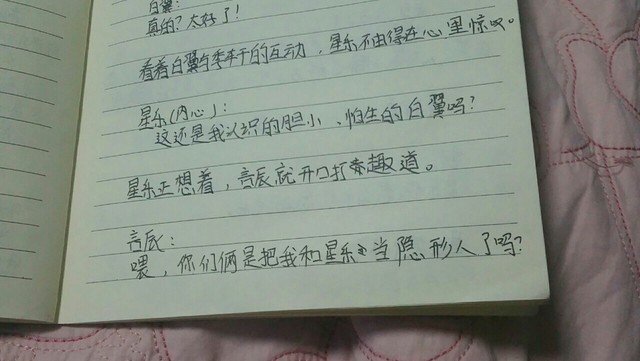 白翼：
真的？太好了！
看着白翼与季千的互动，星乐不由得在心里惊叹。
星乐（内心）：
这还是我认识的胆小、怕生的白翼吗？
星乐正想着，言辰就开口打趣道。
言辰：
喂，你们俩是把我和星乐当隐形人了吗？